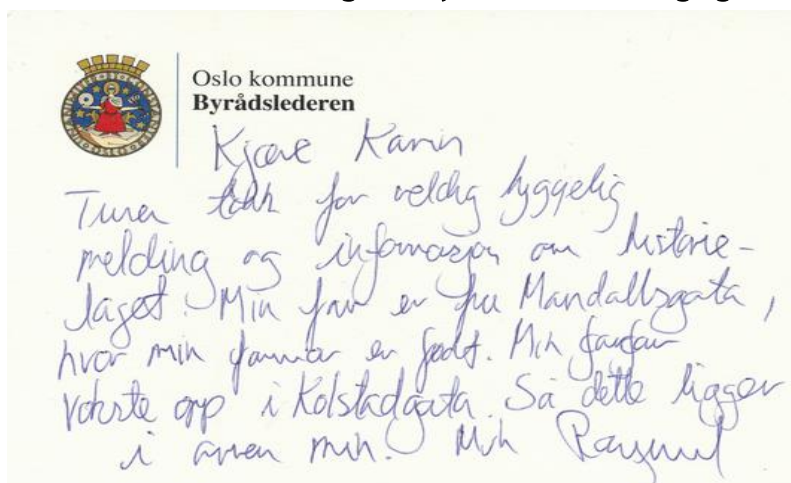 Oslo kommune
Byrådslederen
Kjære Karin
Tusen takk for veldig hyggelig
melding og informasjon om historie-
laget. Min far er fra Mandallsgata,
hvor min farmor er født. Min farfar
vokste opp i Kolstadgata. Så dette ligger
i arven min. Mvh Raymond